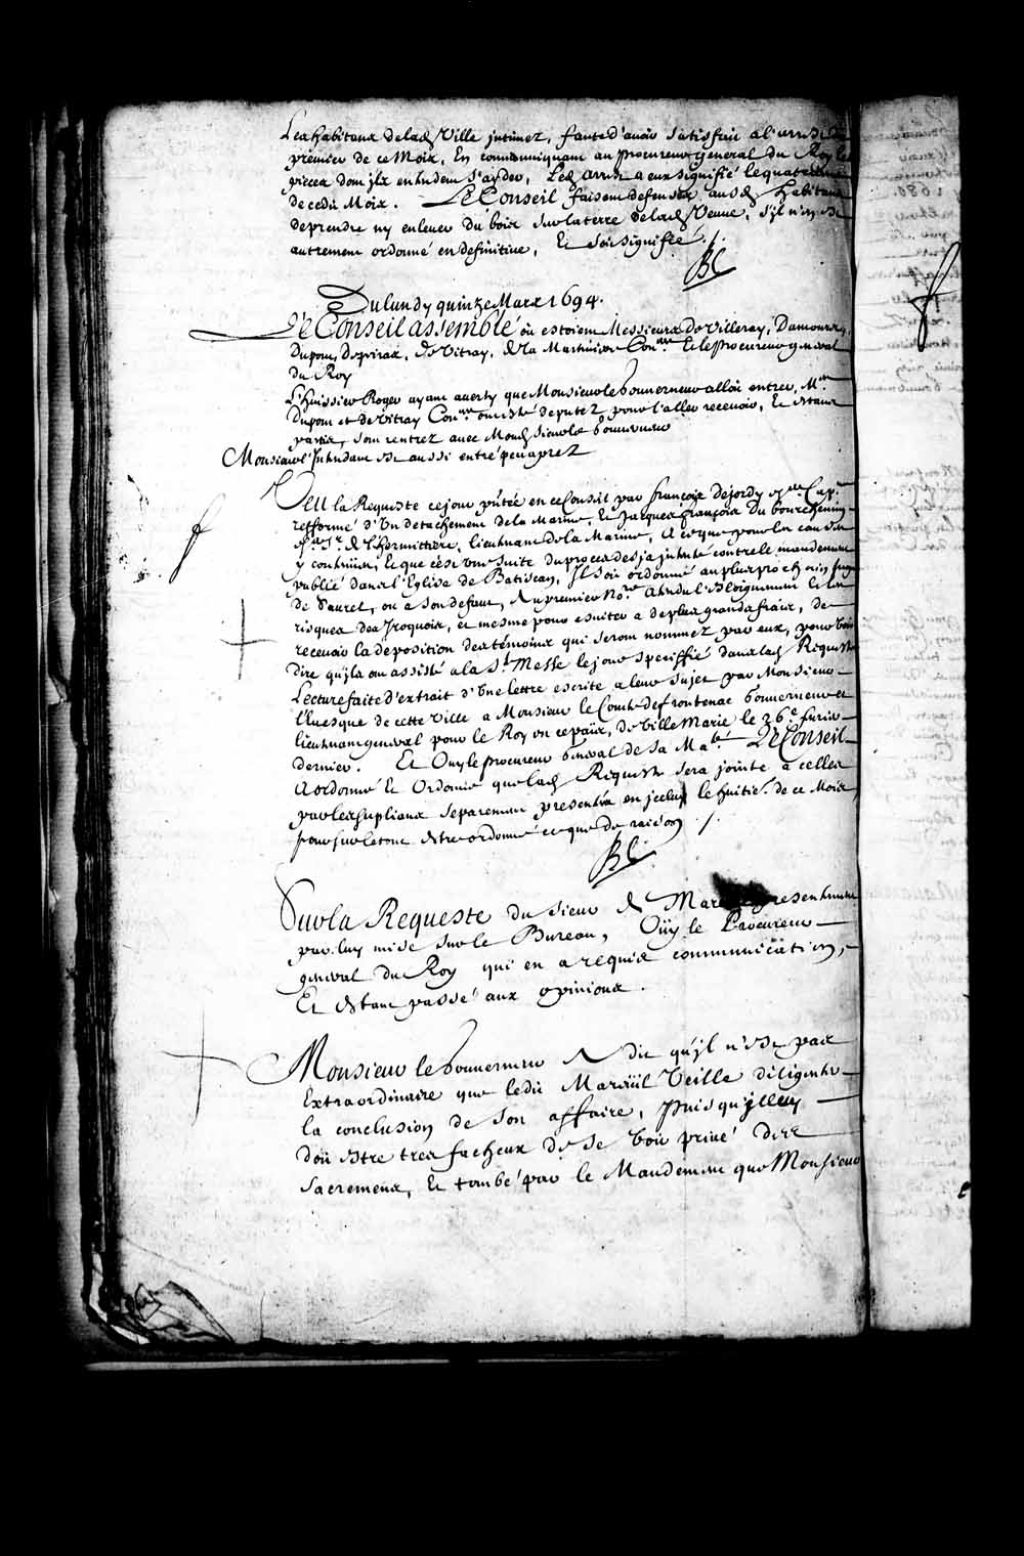 Les habitans de lad. Ville jntimez, faute d'avoir satisfaict a l'arrest du
premier de ce Mois, En communiquant au procureur general du Roy les
pieces dont jls entendent s'ayder, Led. arrest a eux signifié le quatriesme
de cedit Mois. Le Conseil faisant defenses ausd. habitans
de prendre ny enlever du bois sur la terre de lad. Veuve, s'jl n'en est
autrement ordonné en definitive, Et soit signifié ./.
BC
Du lundy quinze Mars 1694.
Le Conseil assemblé où estoient Messieurs De Villeray, Damours,
Dupont, Depeiras, De Vitray, & De la Martiniere Con.ers Et le procureur general
du Roy
L'huissier Roger ayant averty que Monsieur le Gouverneur alloit entrer, M.rs
Dupont et De Vitray Con.ers ont esté deputez pour l'aller recevoir, Et estant
partis, sont rentrez avec Mond. Sieur le Gouverneur
Monsieur l'Intendant est aussi entré peu aprez
Veu la Requeste ce jour p'ntée en ce Conseil par françois Dejordy Cap.ne
refformé d'un detachement de la Marine, Et Jacques françois Du bourchemin
S.r de l'hermittiere, lieutenant de la Marine, A ce que pour les causes
y contenües, Et que c'est une suite du procez desja jntenté contre le mandement
publié dans l'Eglise de Batiscan, Il soit ordonné au plus prochain juge
de Saurel, ou a son defaut, Au premier No.re Attendu l'Esloignement Et les
risques des Iroquois, et mesme pour esviter a de plus grands fraix, de
recevoir la deposition des témoins qui seront nommez par eux, pour voir
dire qu'jls ont assisté a la S.te Messe le jour speciffié dans lad. Requeste
Lecture faite d'extrait d'une lettre escrite a leur sujet par Monsieur
l'Evesque de cette Ville a Monsieur le Comte de frontenac Gouverneur et
lieutenant general pour le Roy en ce païs, de Ville Marie le 26.e fevrier
dernier. Et Ouy le procureur general de sa Ma.té Le Conseil
A ordonné Et Ordonne que lad. Requeste sera jointe a celles
par les supliants separement presentées en jceluy le huitie. de ce Mois
pour sur le tout estre ordonné ce que de raison ./.
BC
Sur la Requeste du Sieur de Mareuil presentement
par luy mise sur le Bureau, Oüy le Procureur
general du Roy qui en a requis communication,
Et estant passé aux opinions.
Monsieur le Gouverneur A dit qu'jl n'est pas
Extraordinaire que ledit Mareüil Veille diligenter
la conclusion de son affaire, puisqu'jl luy
doit estre tres facheux de se voir privé des
Sacremens, Et tombé par le Mandement que Monsieur